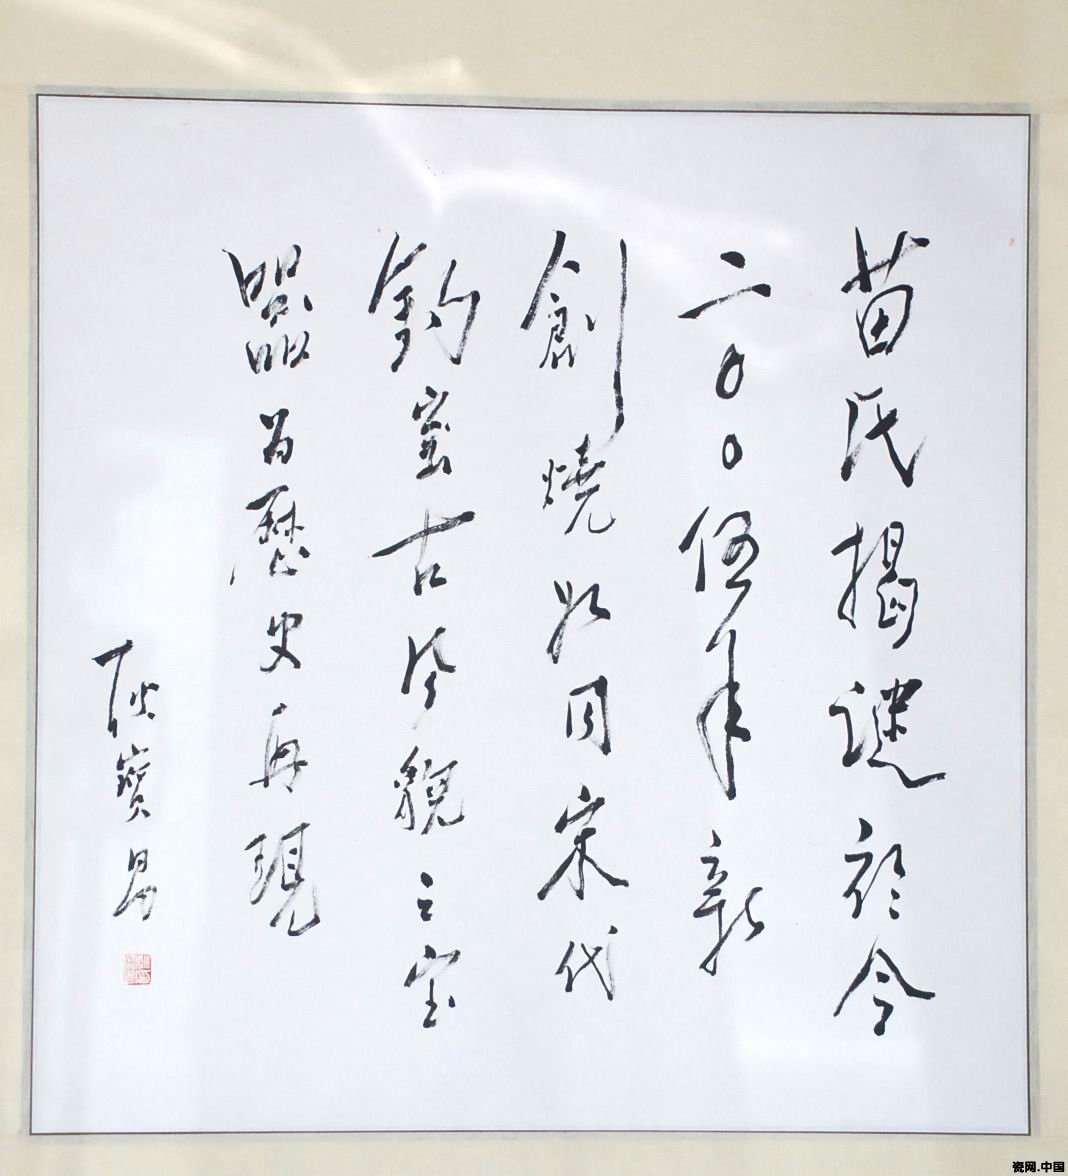 苗氏揭謎於今
二〇〇伍年新
創燒如同宋代
鈞窑古風貌之宝
器为歷史再現
耿寶昌
瓷网.中国